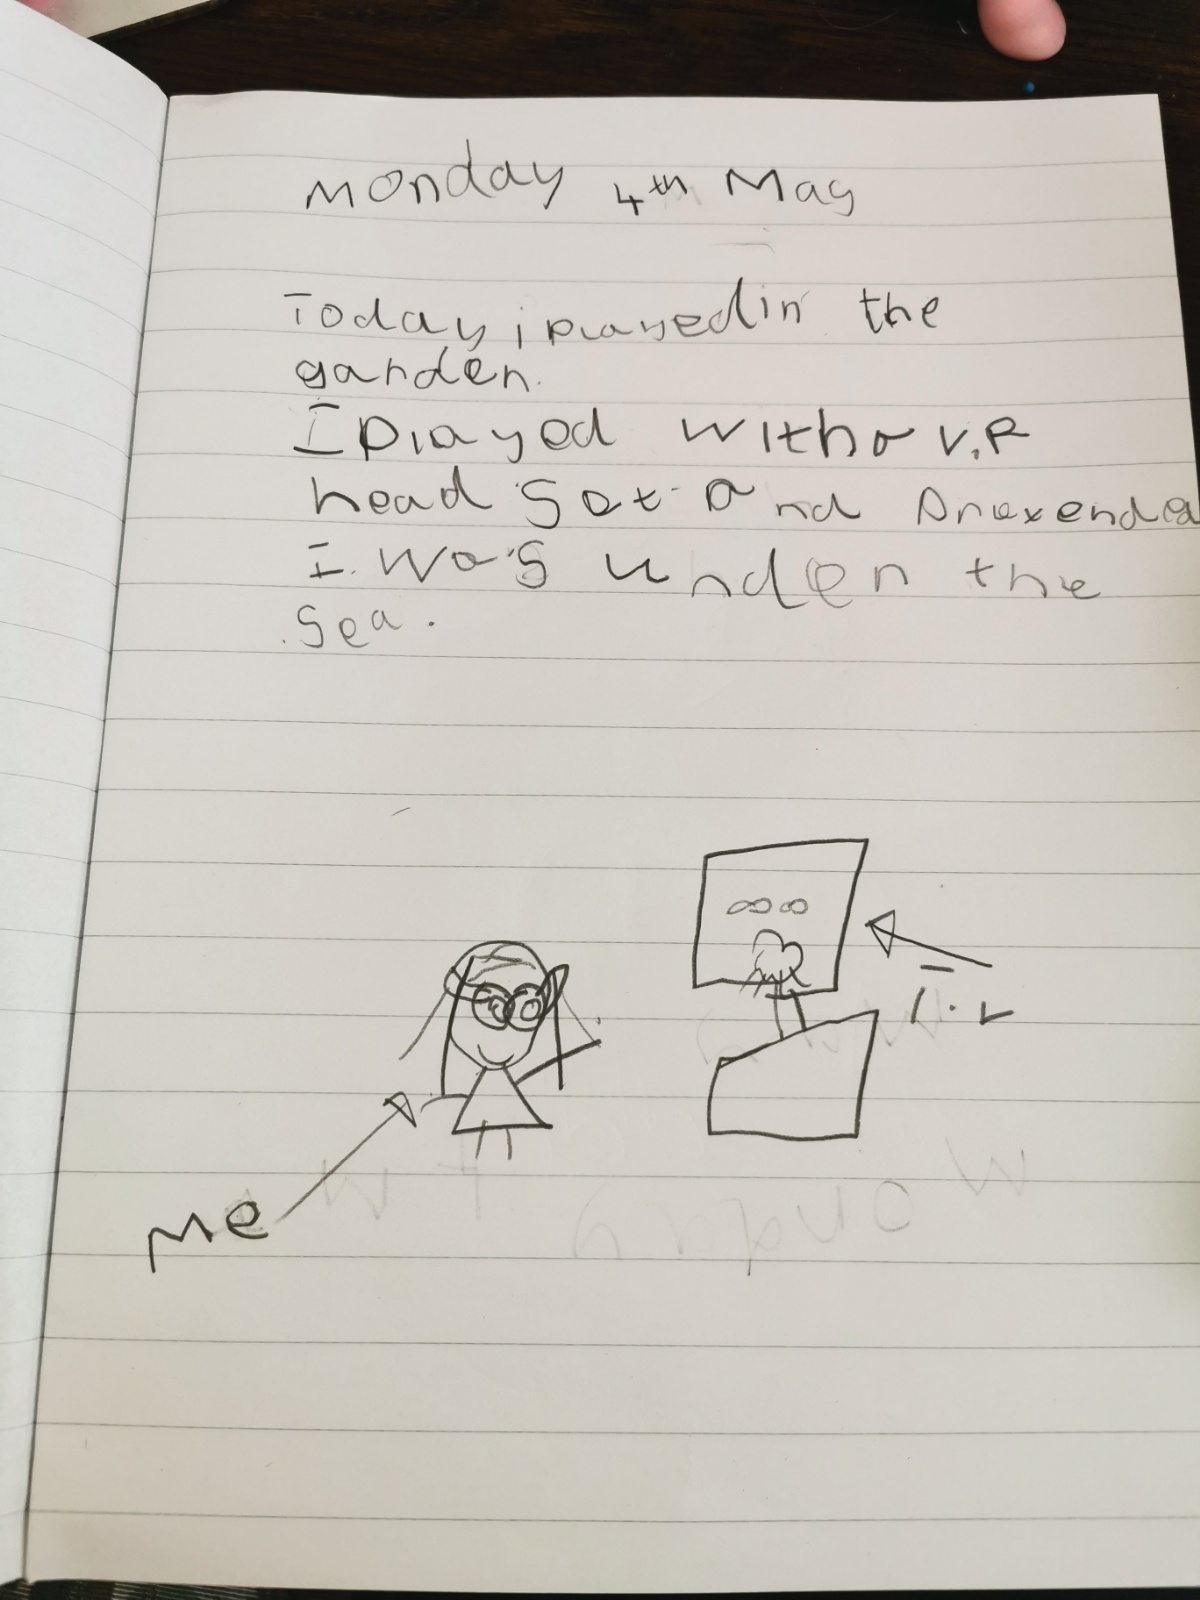 Monday 4th May
Today i played in the
garden.
I played with a V.R
head Set and Pretended
I was under the
Sea.
me